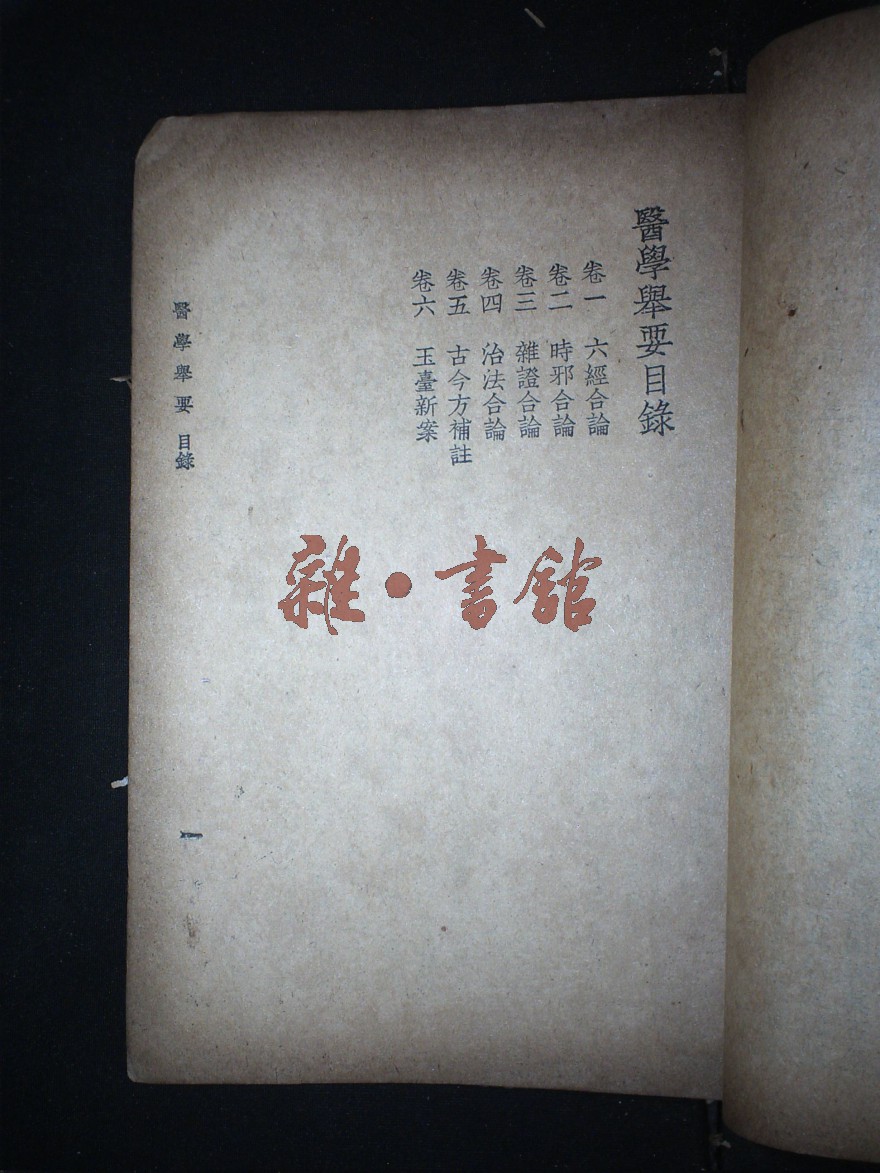 醫學舉要目錄
卷一 六經合論
卷二 時邪合論
卷三 雜證合論
卷四 治法合論
卷五 古今方補註
卷六 玉臺新案
醫學舉要 目錄 一
雜·書館